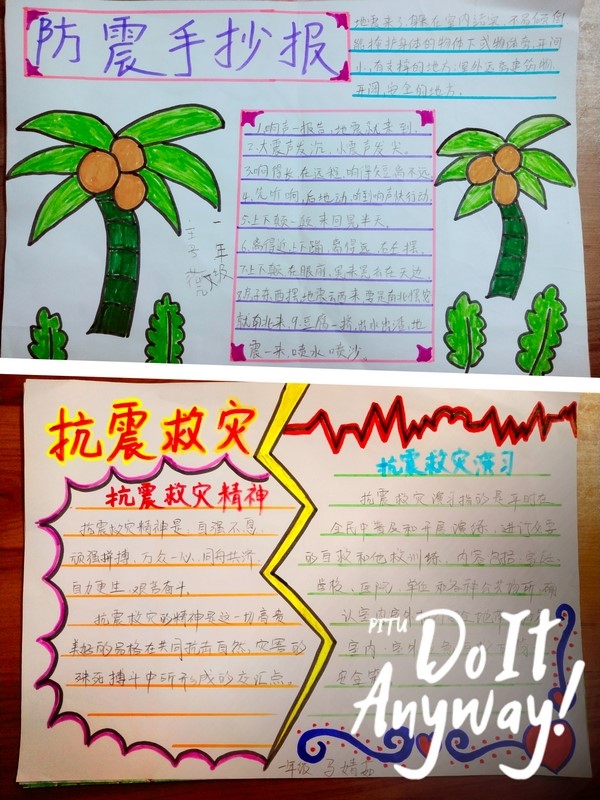 防震手抄报
地震来了自集在室内
身体的物体下或物体旁,开间
小,有支撑的地方;室外远离建筑物,
开阔,安全的地方。
1.响声一报告,地震就来到。
2.大震声发沉,小震声发尖。
3.响得长,在远程,响得短,离不远。
4.先听响,后地动,听到响声快行动。
5.上下颠一颠,来回晃半天。
6.离得近,上下蹦,离得远,左右摆。
7.上下颠,在眼前,晃来晃去在天边。
8.房子东西摆,地震东西来,要是南北摆,它
就南北来。9.豆腐一挤,出水出渣,地
震一来,喷水喷沙。
一年级
抗震救灾
抗震救灾精神
抗震救灾精神是,自强不息,
顽强拼搏,万众一心,同舟共济,
自力更生,艰苦奋斗。
抗震救灾的精神是这一切高贵
美好的品格在共同抗击自然,灾害的
殊死搏斗中所形成的交汇点。
抗震救灾演习
抗震救灾演习指的是平时在
全民中普及和开展演练,进行必要
的自救和他救训练,内容包括:家庭、
学校、医院、
认室内
室内、室外
安全
PITU
Do It
Anyway!
一年级 马婧